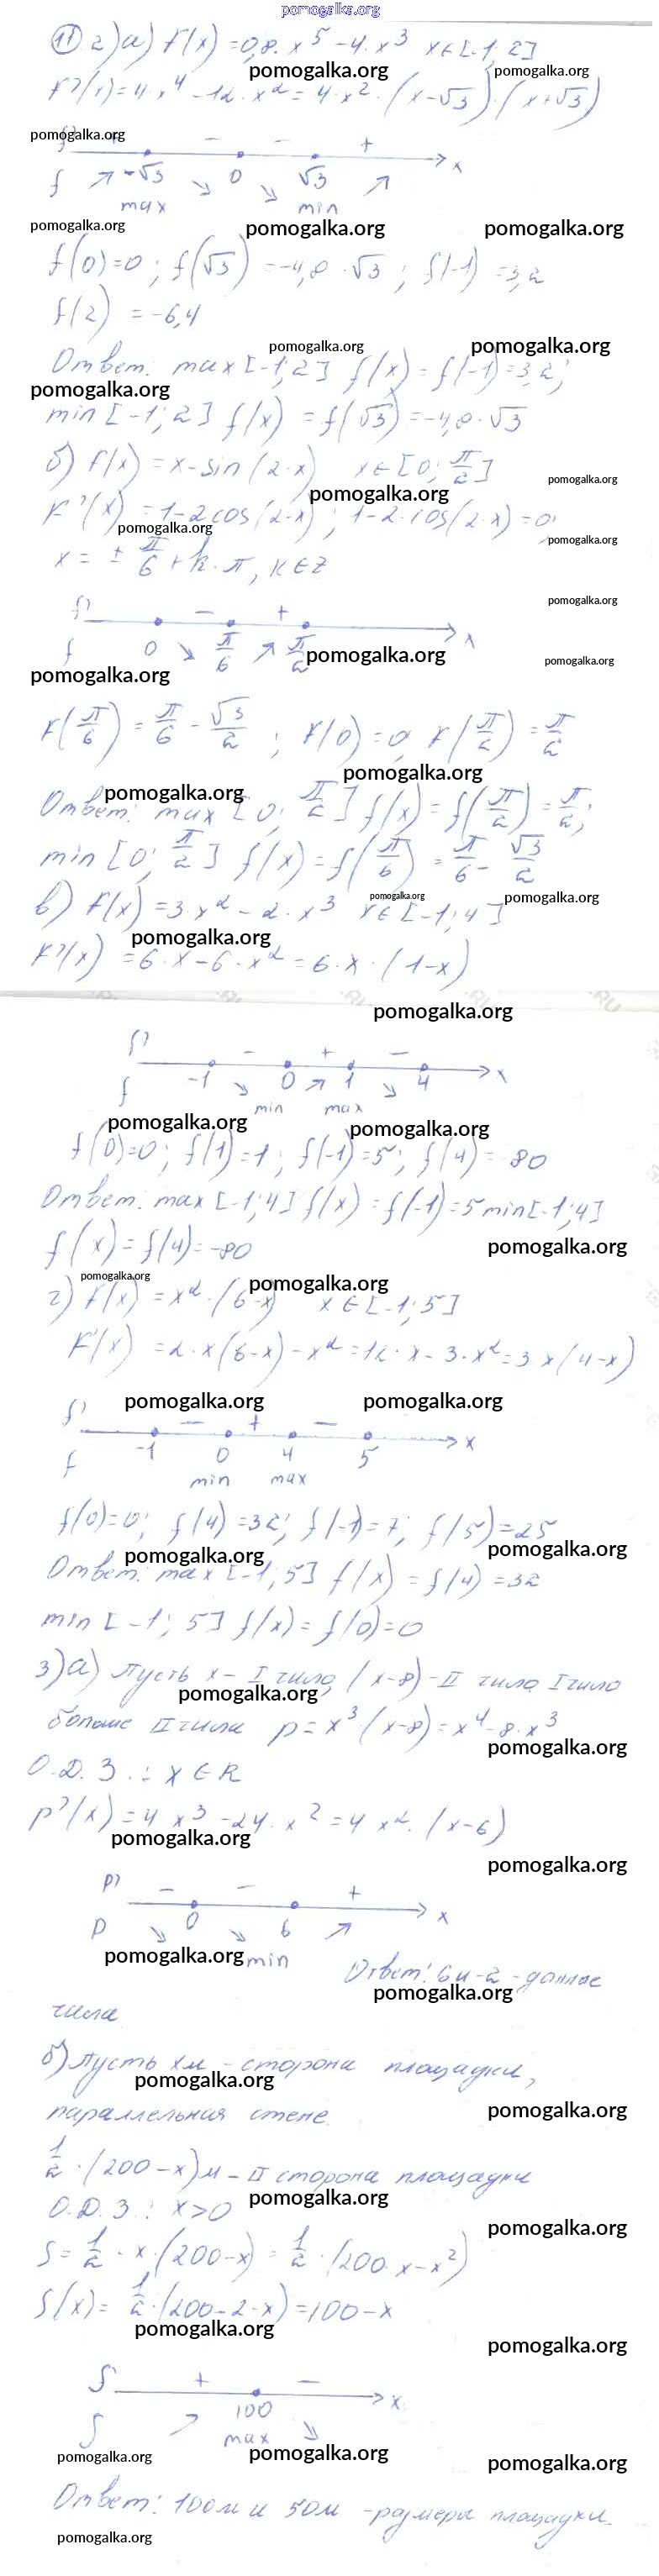 pomogalka.org
11 2) а) f(x) = 0,8·x⁵ - 4·x³ x∈[-1; 2]
pomogalka.org pomogalka.org
f'(x) = 4·x⁴ - 12·x² = 4·x²·(x-√3)·(x+√3)
pomogalka.org
f' + - - + x
f ↗ -√3 ↘ 0 ↘ √3 ↗
max min
pomogalka.org pomogalka.org pomogalka.org
f(0)=0; f(√3) = -4,8·√3; f(-1) = 3,2
f(2) = -6,4
pomogalka.org pomogalka.org
Ответ: max [-1; 2] f(x) = f(-1) = 3,2;
pomogalka.org
min [-1; 2] f(x) = f(√3) = -4,8·√3
б) f(x) = x - sin(2·x) x∈[0; π/2]
pomogalka.org
pomogalka.org
f'(x) = 1-2cos(2·x); 1-2·cos(2·x) = 0;
pomogalka.org pomogalka.org
x = ± π/6 + k·π, k∈Z
pomogalka.org
f' - + x
f 0 ↘ π/6 ↗ π/2
pomogalka.org pomogalka.org
pomogalka.org
f(π/6) = π/6 - √3/2; f(0) = 0; f(π/2) = π/2
pomogalka.org
pomogalka.org
Ответ: max [0; π/2] f(x) = f(π/2) = π/2;
min [0; π/2] f(x) = f(π/6) = π/6 - √3/2
pomogalka.org pomogalka.org
в) f(x) = 3·x² - 2·x³ x∈[-1; 4]
pomogalka.org
f'(x) = 6·x - 6·x² = 6·x·(1-x)
pomogalka.org
f' - + - x
f -1 ↘ 0 ↗ 1 ↘ 4
min max
pomogalka.org pomogalka.org
f(0)=0; f(1)=1; f(-1)=5; f(4) = -80
Ответ: max [-1; 4] f(x) = f(-1) = 5 min [-1; 4]
f(x) = f(4) = -80
pomogalka.org
pomogalka.org pomogalka.org
г) f(x) = x²·(6-x) x∈[-1; 5]
f'(x) = 2·x(6-x) - x² = 12·x - 3·x² = 3x(4-x)
pomogalka.org pomogalka.org
f' - + - x
f -1 0 4 5
min max
f(0)=0; f(4)=32; f(-1)=7; f(5)=25
pomogalka.org pomogalka.org
Ответ: max [-1; 5] f(x) = f(4) = 32
min [-1; 5] f(x) = f(0) = 0
3) а) Пусть x - I число, (x-8) - II число. I число
pomogalka.org
больше II числа p = x³·(x-8) = x⁴ - 8·x³
pomogalka.org
О.Д.З.: x∈R
p'(x) = 4x³ - 24·x² = 4x²·(x-6)
pomogalka.org
pomogalka.org
p' - - + x
p ↘ 0 ↘ 6 ↗
pomogalka.org min
Ответ: 6 и -2 - данные
pomogalka.org
числа
б) Пусть x м - сторона площадки,
pomogalka.org
параллельная стене.
pomogalka.org
1/2·(200-x) м - II сторона площадки
pomogalka.org
О.Д.З.: x>0
pomogalka.org
S = 1/2·x·(200-x) = 1/2·(200·x - x²)
S'(x) = 1/2·(200-2·x) = 100-x
pomogalka.org
pomogalka.org
S' + - x
S ↗ 100 ↘
max
pomogalka.org pomogalka.org pomogalka.org
Ответ: 100м и 50м - размеры площадки.
pomogalka.org